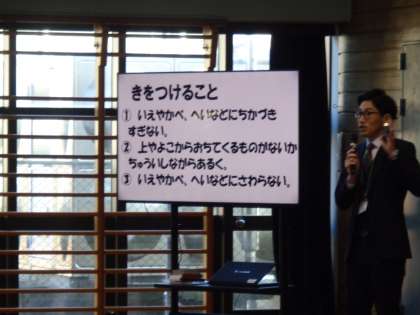 きをつけること
① いえやかべ、へいなどにちかづき
すぎない。
② 上やよこからおちてくるものがないか
ちゅういしながらあるく。
③ いえやかべ、へいなどにさわらない。